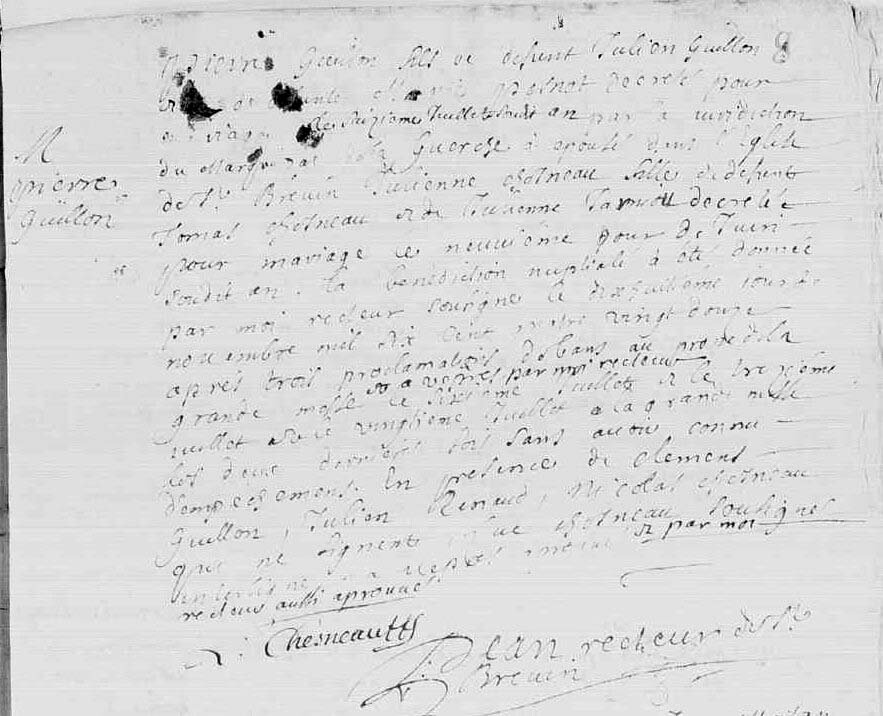 M
pierre
Guillon
pierre Guillon fils de defunt Julien Guillon 8
de defunte Marie decreté pour
mariage le seiziéme Juillet soudit an par la juridiction
du Marquisat de la Guerche à epousé dans l'Eglise
de St. Brevin Julienne Chesneau fille de defunt
Tomas Chesneau et de Julienne decretée
pour mariage le neuviéme jour de
soudit an. la benediction nuptiale à été donnée
par moi recteur sousigné le dixhuitiéme jour de
nouembre mil six cent vingt douze
apres troit proclamations de bans au prone de la
grande messe le Juillet et le treziéme
par moi recteur
Juillet et le vingtiéme Juillet a la grande messe
les deux derniers fois sans auoir connu
d'empechement. En presence de Clement
Guillon, Julien Renaud, Nicolas Chesneau
qui ne signent Chesneau sousignés
interligne et par moi
recteur aussi aprouué
Chesneau
Jean recteur de St.
Brevin